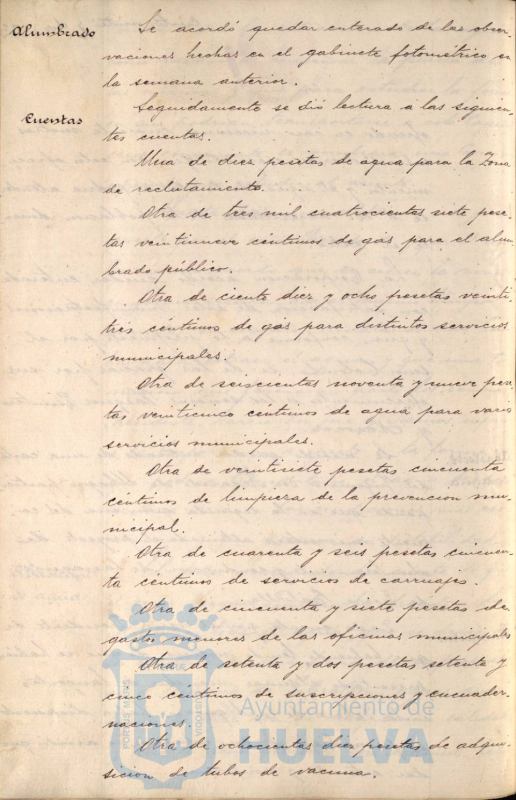 Alumbrado
Se acordó quedar enterado de las obser-
vaciones hechas en el gabinete fotométrico en
la semana anterior.
Cuentas
Seguidamente se dió lectura a las siguien-
tes cuentas.
Una de diez pesetas de agua para la Zona
de reclutamiento.
Otra de tres mil cuatrocientas siete pese-
tas veintinueve céntimos de gas para el alum-
brado público.
Otra de ciento diez y ocho pesetas veinti-
tres céntimos de gas para distintos servicios
municipales.
Otra de seiscientas noventa y nueve pese-
tas veinticinco céntimos de agua para varios
servicios municipales.
Otra de veintisiete pesetas cincuenta
céntimos de limpieza de la prevencion mu-
nicipal.
Otra de cuarenta y seis pesetas cincuen-
ta céntimos de servicios de carruajes.
Otra de cincuenta y siete pesetas de
gastos menores de las oficinas municipales
Otra de setenta y dos pesetas setenta y
cinco centimos de suscripciones y encuader-
naciones.
Otra de ochocientas diez pesetas de adqui-
sicion de tubos de vacuna.
Ayuntamiento de
HUELVA